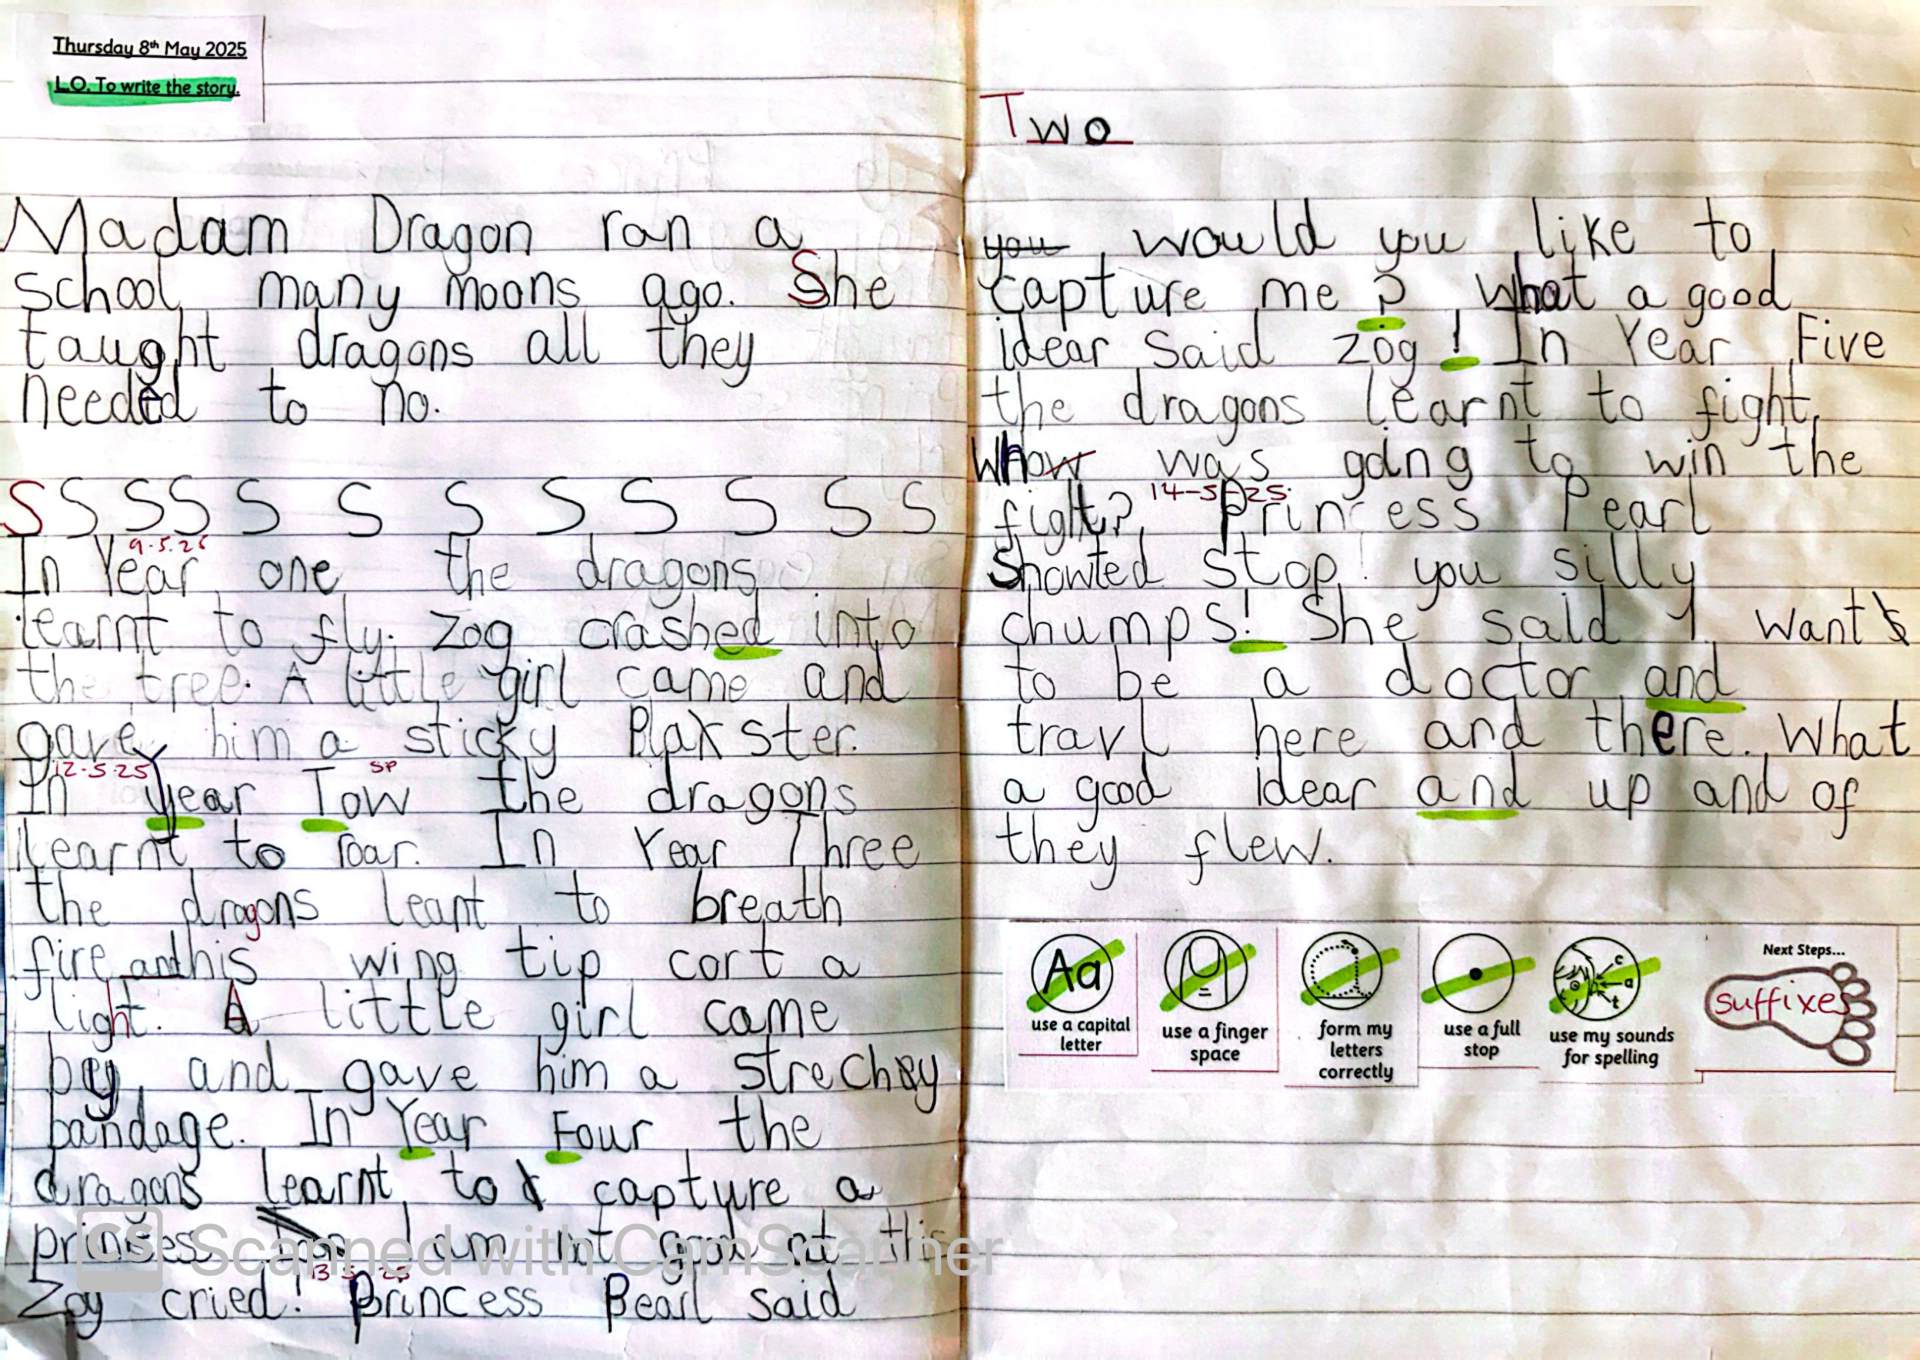 Thursday 8th May 2025
L.O. To write the story.
Madam Dragon ran a
school many moons ago. She
taught dragons all they
needed to no.
S S S S S S S S S S S S
9.5.25
In Year one the dragons
learnt to fly. Zog crashed into
the tree. A little girl came and
gave him a sticky Plaxster.
12.5.25 sp
In Year Tow the dragons
learnt to roar. In Year Three
the dragons leant to breath
fire and his wing tip cort a
light. A little girl came
bey and gave him a strechey
bandage. In Year Four the
dragons learnt to capture a
princess I am not good at this
13.5.25
Zog cried! Princess Pearl said
Two
you would you like to
capture me? What a good
idear said Zog! In Year Five
the dragons learnt to fight.
Whow was going to win the
14-5-25
fight? Princess Pearl
Showted stop! you silly
chumps! She said I want
to be a doctor and
travl here and there. What
a good idear and up and of
they flew.
Aa
use a capital letter
use a finger space
form my letters correctly
use a full stop
c a t
use my sounds for spelling
Next Steps...
suffixes
CS Scanned with CamScanner